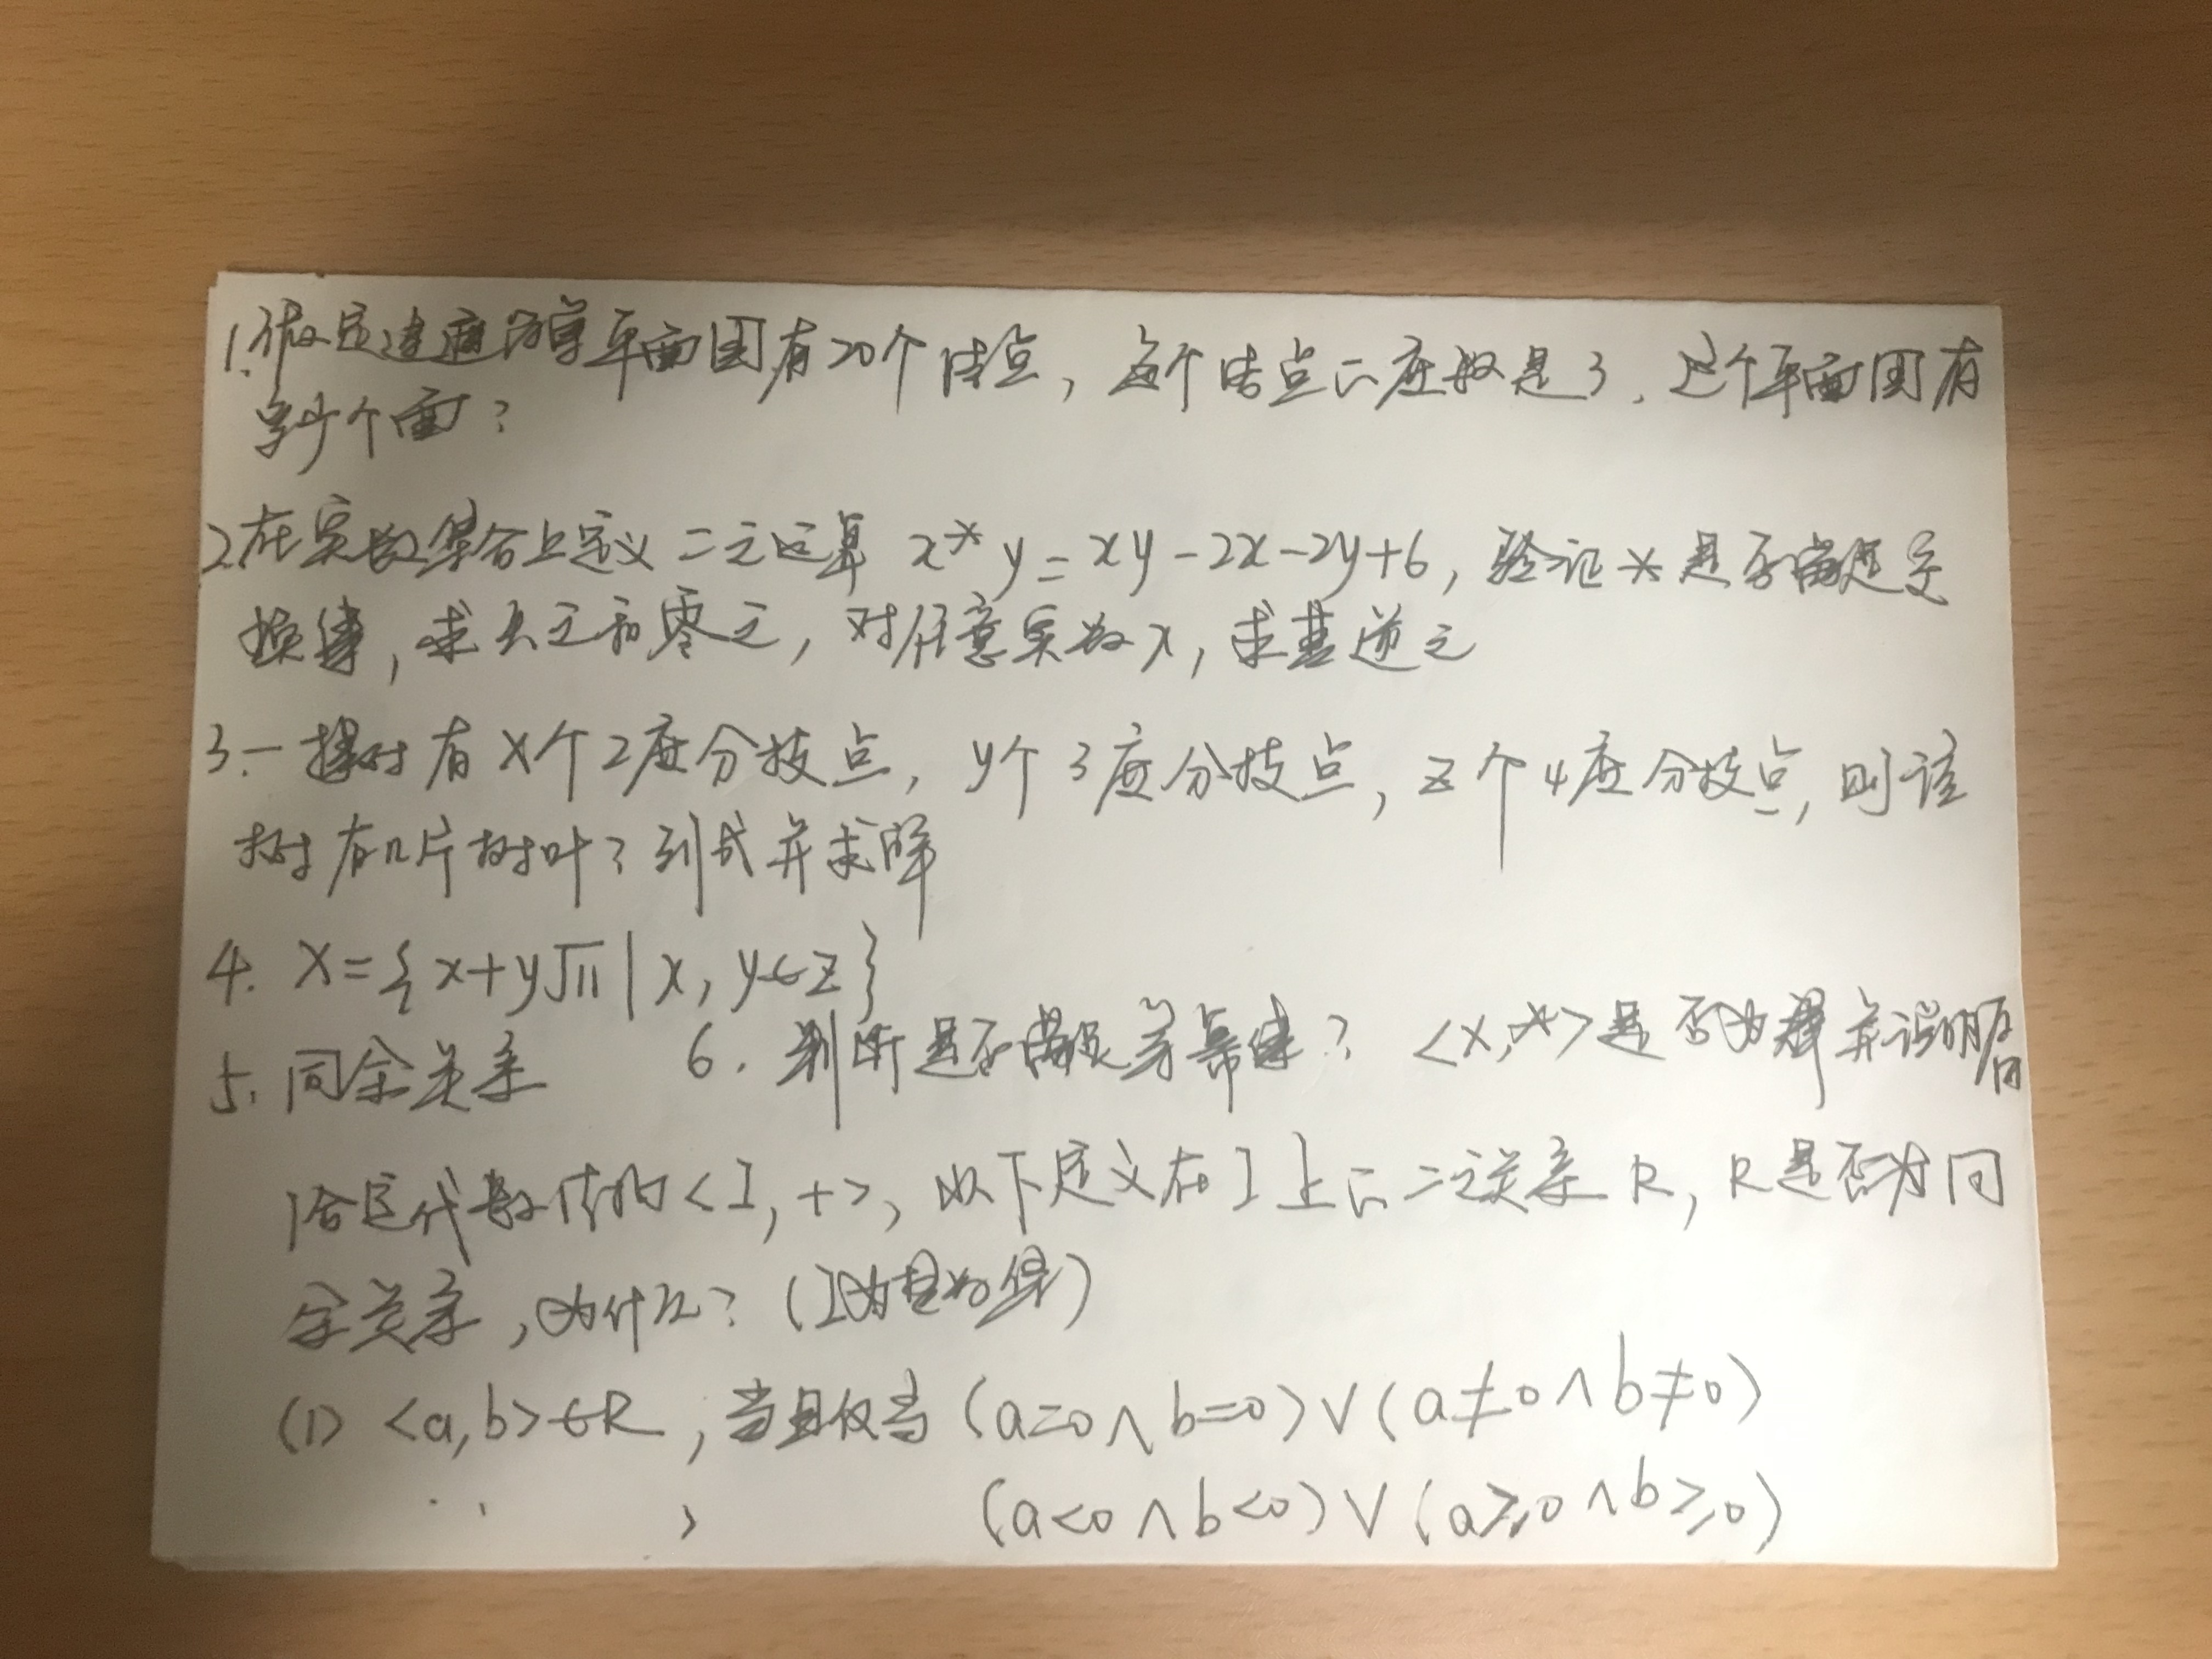 1.假定连通简单平面图有20个结点，每个结点的度数是3，这个平面图有
多少个面？
2.在实数集合上定义二元运算 x*y=xy-2x-2y+6，验证*是否满足交
换律，求幺元和零元，对任意实数x，求其逆元
3.一棵树有x个2度分枝点，y个3度分枝点，z个4度分枝点，则该
树有几片树叶？列式并求解
4. X={x+y√11|x,y∈Z}
5.同余关系 6.判断是否满足等幂律？<X,*>是否为群并说明
给定代数结构<I,+>，以下定义在I上的二元关系R，R是否为同
余关系，为什么？(I为整数集)
(1) <a,b>∈R，当且仅当 (a=0∧b=0)∨(a≠0∧b≠0)
(a<0∧b<0)∨(a≥0∧b≥0)